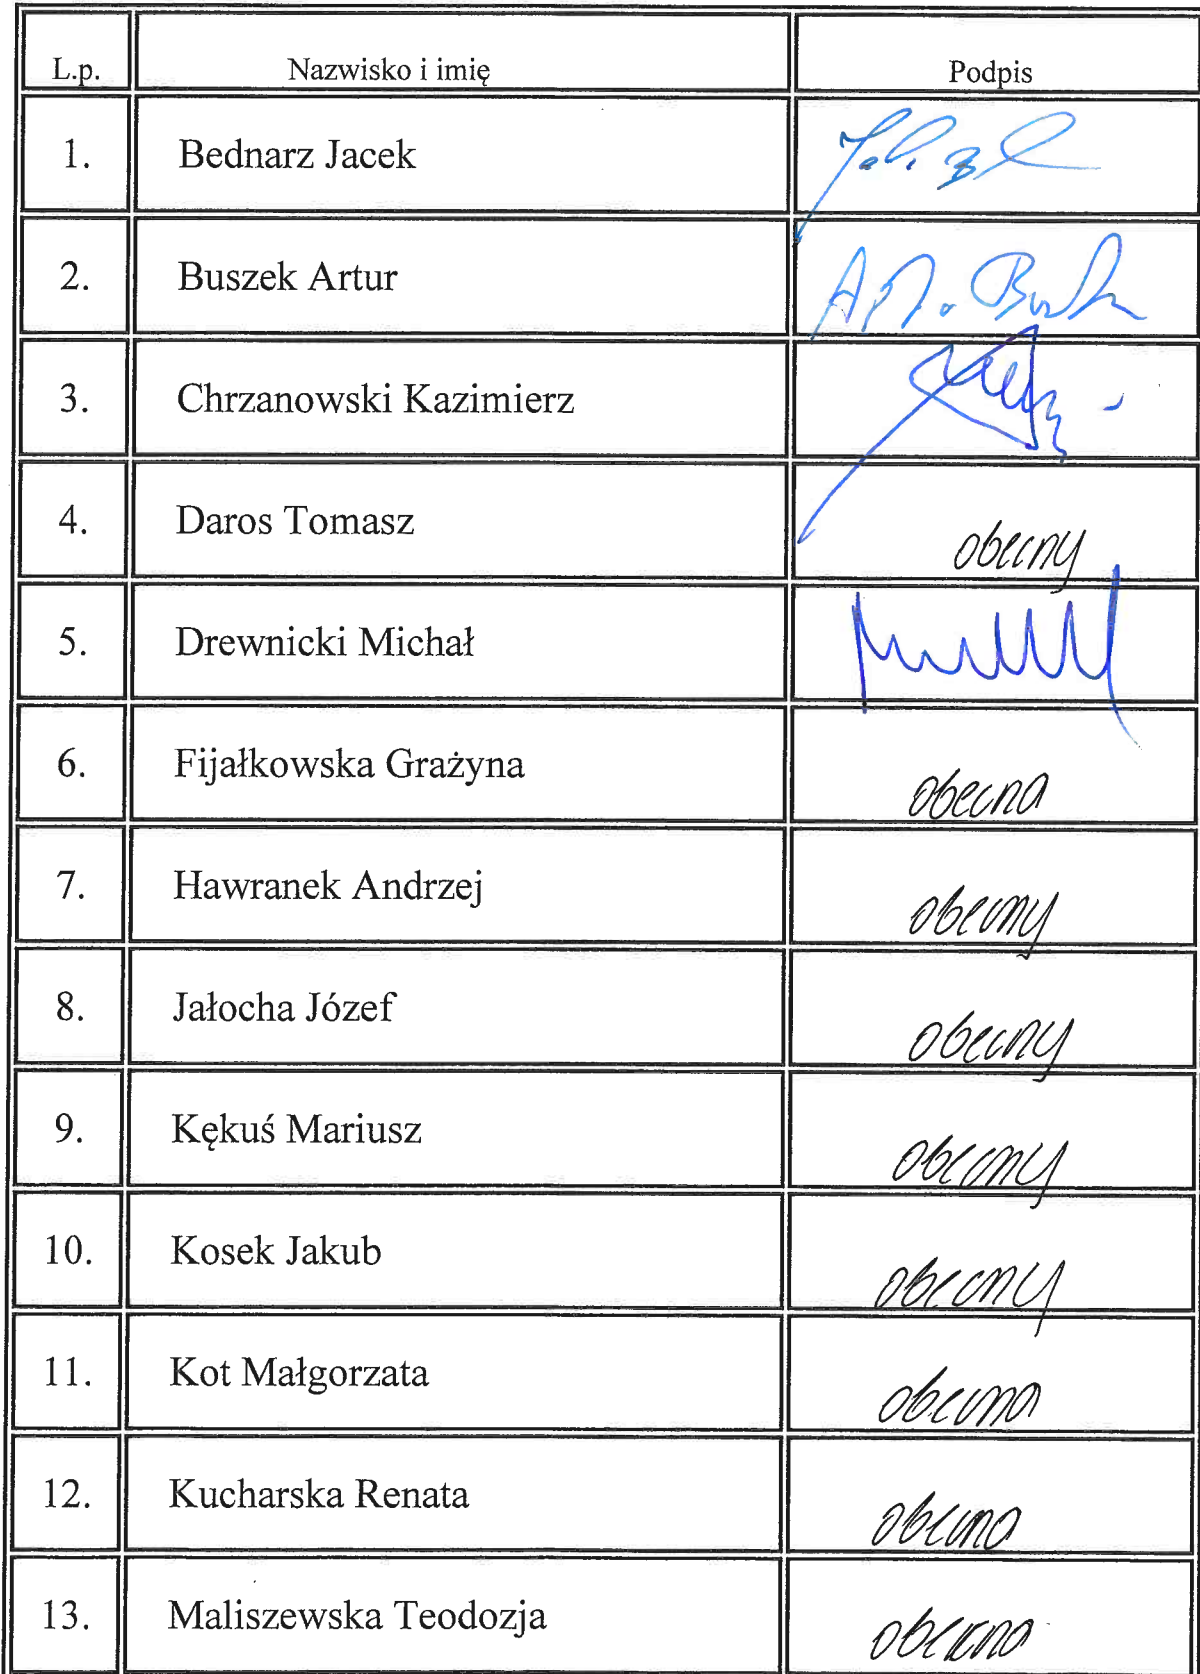 L.p. Nazwisko i imię Podpis
1. Bednarz Jacek
2. Buszek Artur
3. Chrzanowski Kazimierz
4. Daros Tomasz obecny
5. Drewnicki Michał
6. Fijałkowska Grażyna obecna
7. Hawranek Andrzej obecny
8. Jałocha Józef obecny
9. Kękuś Mariusz obecny
10. Kosek Jakub obecny
11. Kot Małgorzata obecna
12. Kucharska Renata obecna
13. Maliszewska Teodozja obecna